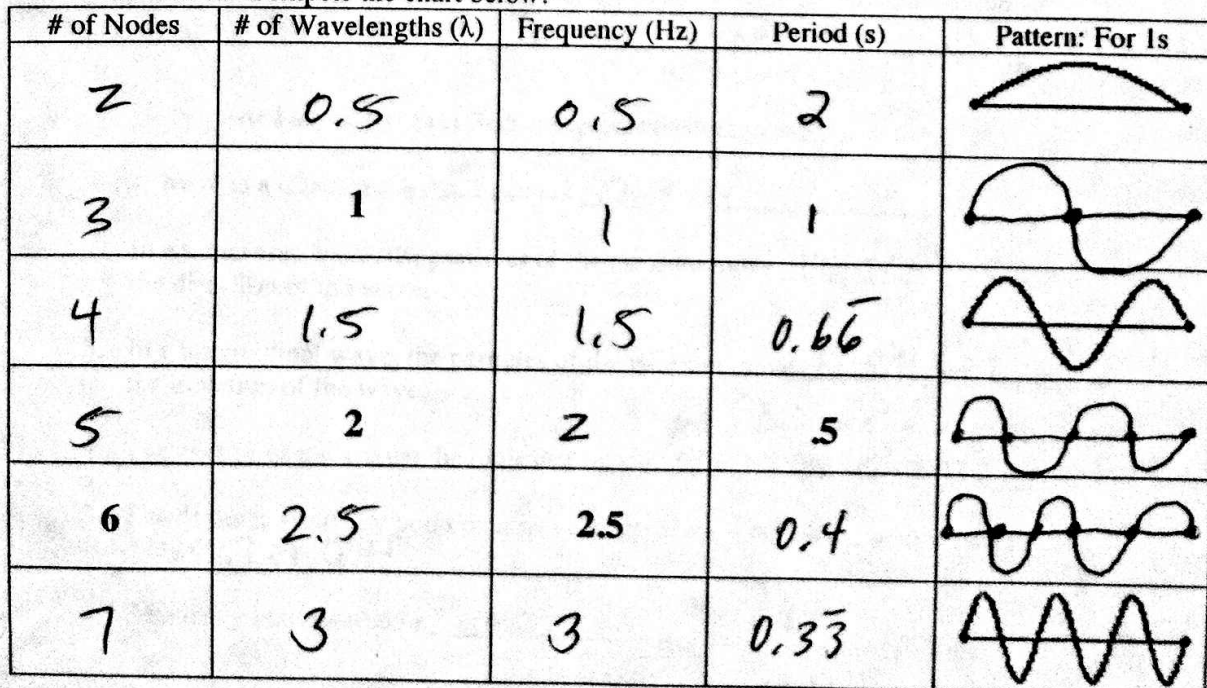 the chart below:
# of Nodes # of Wavelengths (λ) Frequency (Hz) Period (s) Pattern: For 1s
2 0.5 0.5 2
3 1 1 1
4 1.5 1.5 0.66̅
5 2 2 .5
6 2.5 2.5 0.4
7 3 3 0.33̅